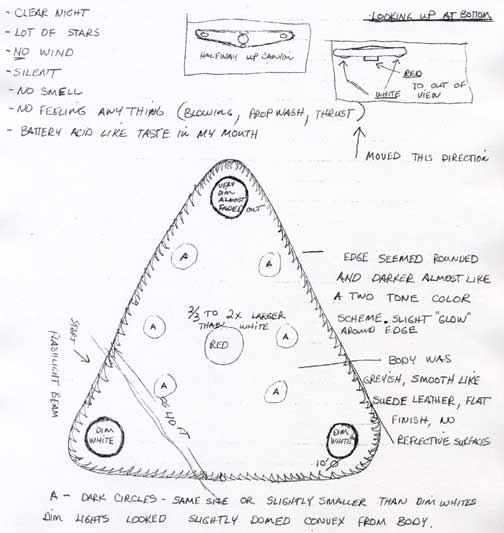 - CLEAR NIGHT
- LOT OF STARS
- NO WIND
- SILENT
- NO SMELL
- NO FEELING ANYTHING (BLOWING, PROP WASH, THRUST)
- BATTERY ACID LIKE TASTE IN MY MOUTH
HALFWAY UP CANYON
LOOKING UP AT BOTTOM
RED
WHITE
TO OUT OF
VIEW
MOVED THIS DIRECTION
VERY
DIM
ALMOST
FADED OUT
A
A
EDGE SEEMED ROUNDED
AND DARKER ALMOST LIKE
A TWO TONE COLOR
SCHEME. SLIGHT "GLOW"
AROUND EDGE
2/3 TO 2X LARGER
THAN WHITE
RED
A
A
A
A
START
FLASHLIGHT BEAM
40 FT
BODY WAS
GREYISH, SMOOTH LIKE
SUEDE LEATHER, FLAT
FINISH, NO
REFLECTIVE SURFACES
DIM
WHITE
DIM
WHITE
10' Ø
A - DARK CIRCLES - SAME SIZE OR SLIGHTLY SMALLER THAN DIM WHITES
DIM LIGHTS LOOKED SLIGHTLY DOMED CONVEX FROM BODY.